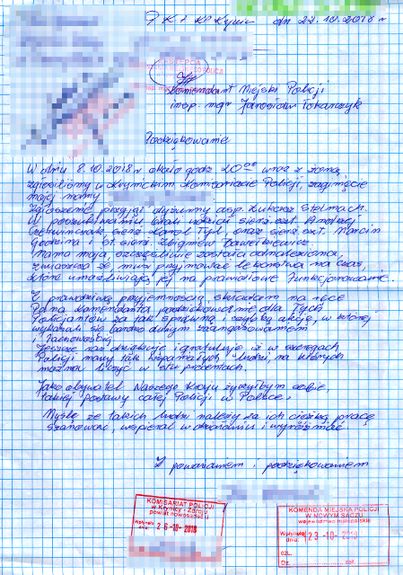 dn 22.10.2018 r
Komendant Miejski Policji
insp. mgr Jarosław Tokarczyk
Podziękowanie
W dniu 8.10.2018 r około godz 20⁰⁰ wraz z żoną
zgłosiliśmy w krynickim Komisariacie Policji, zaginięcie
mojej mamy
Zgłoszenie przyjął dyżurny asp. Łukasz Stelmach.
W poszukiwaniu brali udział sierż szt. Andrzej
sierż Karol Tyl, oraz sierż szt. Marcin
Godzina i st. sierż. Zbigniew
Mama moja, szczęśliwie została odnaleziona,
zwłaszcza że musi przyjmować lekarstwa na czas,
które umożliwiają jej na prawidłowe funkcjonowanie.
Z prawdziwą przyjemnością składam na ręce
Pana Komendanta podziękowanie dla tych
funkcjonariuszy za tak sprawną i szybką akcję, w której
wykazali się bardzo dużym zaangażowaniem
i fachowością.
Jeszcze raz dziękuję i gratuluję iż w szeregach
Policji mamy tak wspaniałych ludzi, na których
można liczyć w stu procentach.
Jako obywatel naszego kraju życzyłbym sobie
takiej postawy całej Policji w Polsce.
Myślę że takich ludzi należy za ich ciężką pracę
szanować, wspierać w działaniu i wyróżniać
Z poważaniem i podziękowaniem
KOMISARIAT POLICJI
w Krynicy-Zdroju
powiat nowosądecki
Wpłynęło dnia 26-10-2018
KOMENDA MIEJSKA POLICJI
W NOWYM SĄCZU
województwo małopolskie
Wpłynęło dnia 23-10-2018